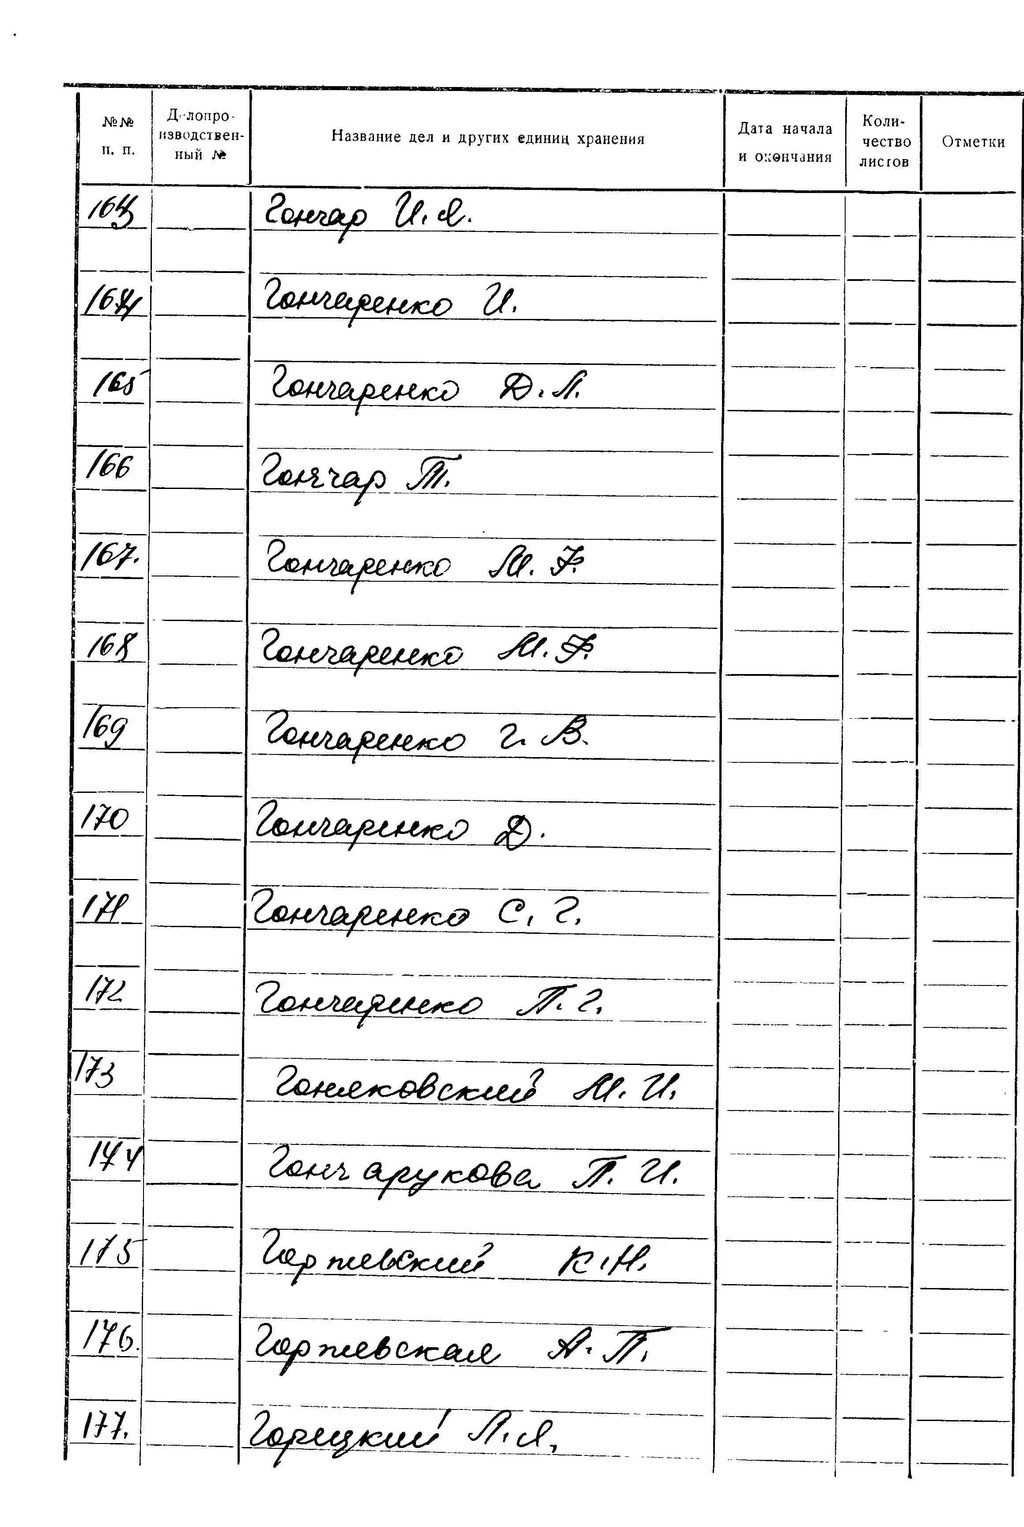 №№ п. п. Делопроизводственный № Название дел и других единиц хранения Дата начала и окончания Количество листов Отметки
163 Гончар И. Я.
164 Гончаренко И.
165 Гончаренко Д. Л.
166 Гончар Т.
167. Гончаренко М. Ф.
168 Гончаренко М. Ф.
169 Гончаренко Г. В.
170 Гончаренко Д.
171 Гончаренко С. Г.
172 Гончаренко П. Г.
173 Гоняковский М. И.
174 Гончарукова П. И.
175 Горжевский К. Н.
176. Горжевская А. П.
177. Горецкий Л. Я.